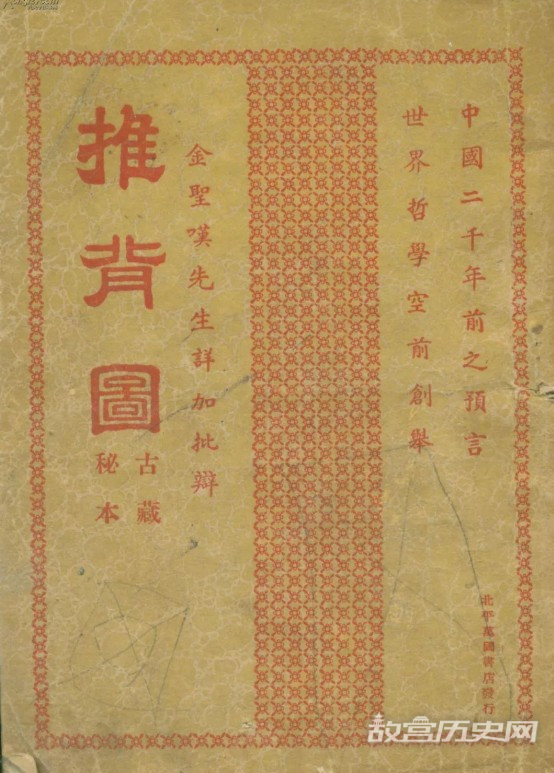 中國二千年前之預言
世界哲學空前創舉
金聖嘆先生詳加批辯
推背圖
古藏
秘本
北平萬國書店發行
故宫历史网